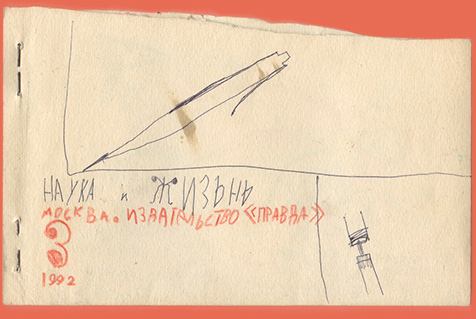 НАУКА и ЖИЗЬНЬ
МОСКВА. ИЗДАТЕЛЬСТВО «ПРАВДА»
3
1992